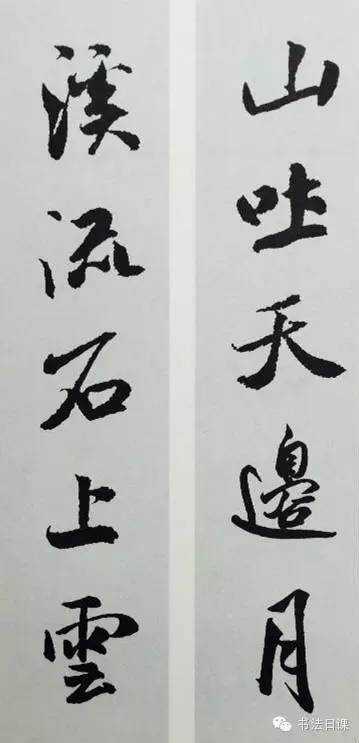 山吐天邊月
溪流石上雲
书法日课